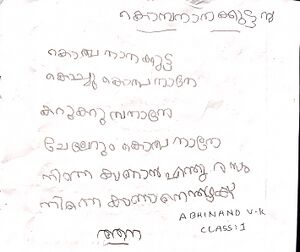 കൊമ്പനാനക്കുട്ടൻ
കൊമ്പനാനക്കുട്ടാ
കൊച്ചു കൊമ്പനാനേ
കറുകറുമ്പനാനേ
ചേലേറും കൊമ്പനാനേ
നിന്നെ കാണാൻ എന്തു രസം
നിന്നെ കാണാനെന്തഴക്
ABHINAND V-K
CLASS:1